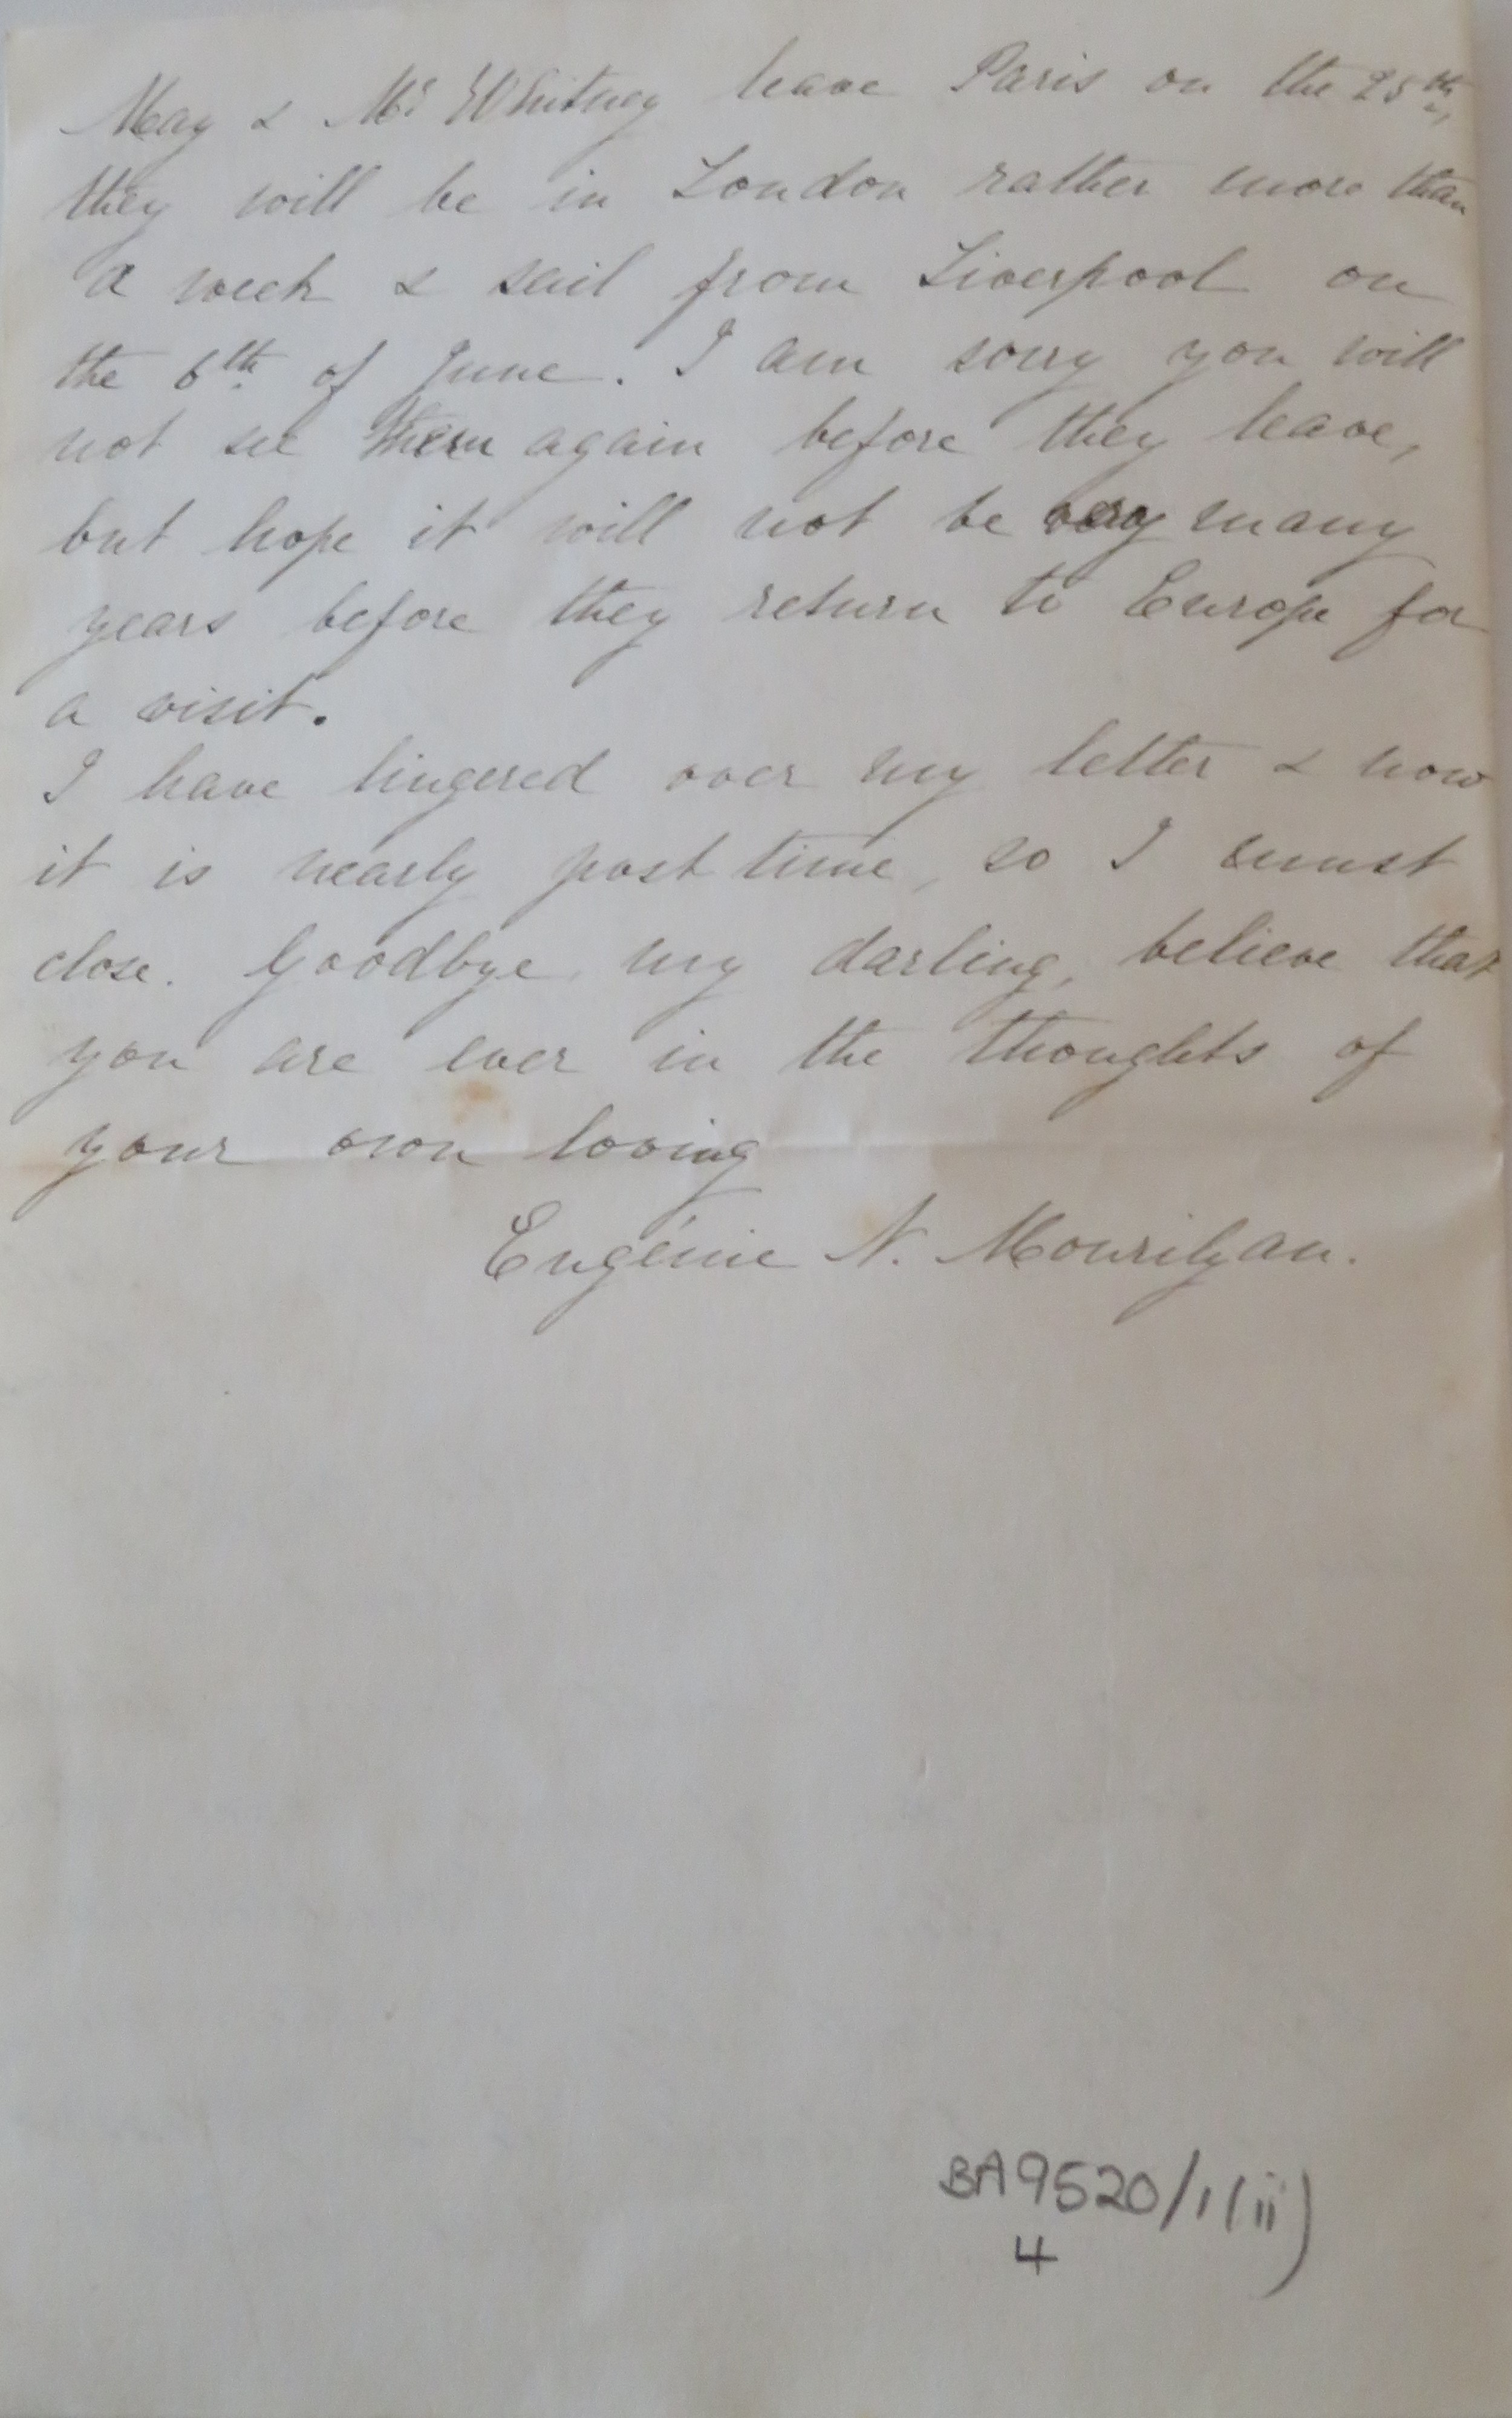 May & Mr Whitney leave Paris on the 25th,
they will be in London rather more than
a week & sail from Liverpool on
the 6th of June. I am sorry you will
not see them again before they leave,
but hope it will not be very many
years before they return to Europe for
a visit.
I have lingered over my letter & now
it is nearly post time, so I must
close. Goodbye my darling, believe that
you are ever in the thoughts of
your own loving
Eugénie N. Mourilyan.
BA9520/1(ii)
4